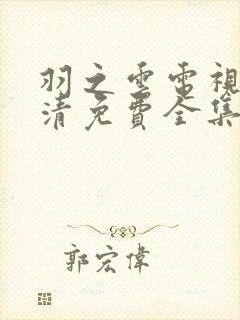 羽之雲電視
清免費全集
郭宏偉